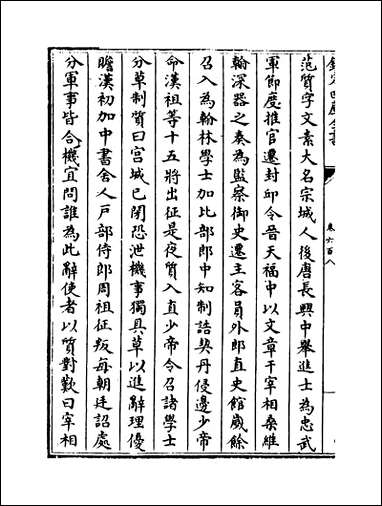 欽定四庫全書
卷六百八
范質字文素大名宗城人後唐長興中舉進士為忠武
軍節度推官遷封邱令晉天福中以文章干宰相桑維
翰深器之奏為監察御史遷主客員外郎直史館歲餘
召入為翰林學士加比部郎中知制誥契丹侵邊少帝
命漢祖等十五將出征是夜質入直少帝令召諸學士
分草制質曰宮城已閉恐泄機事獨具草以進辭理優
贍漢初加中書舍人戶部侍郎周祖征叛每朝廷詔處
分軍事皆合機宜問誰為此辭使者以質對歎曰宰相